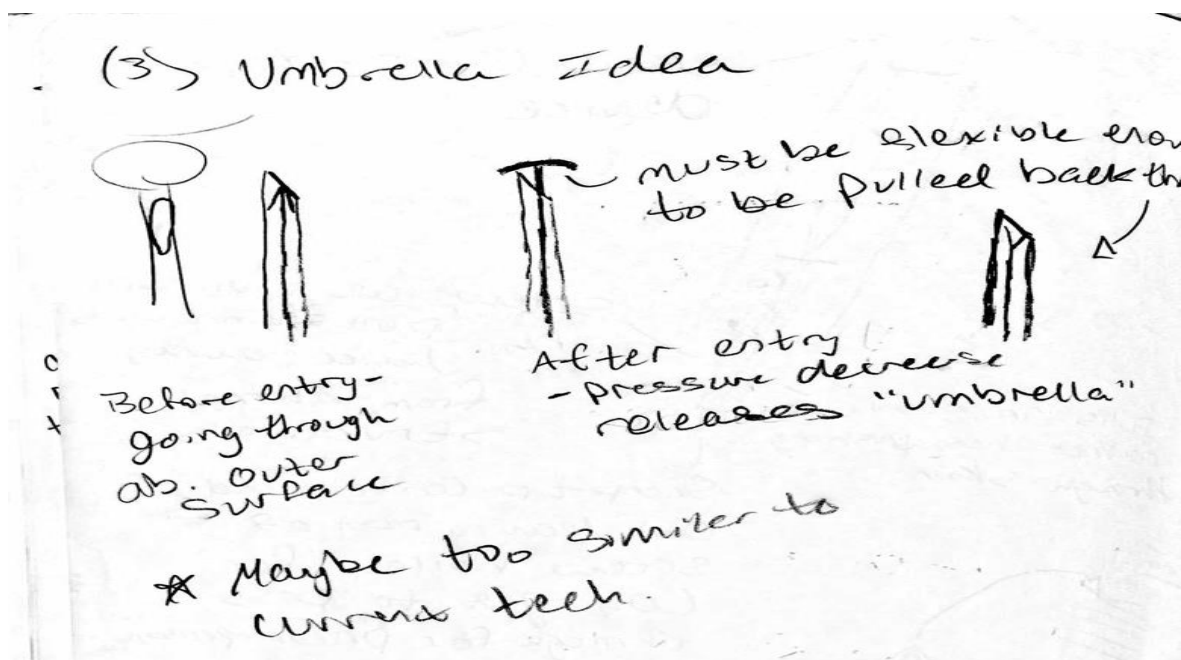 (3) Umbrella Idea
must be flexible
to be pulled back
Before entry-
going through
ab. outer
surface
After entry
- pressure decrease
releases "umbrella"
* Maybe too similar to
current tech.